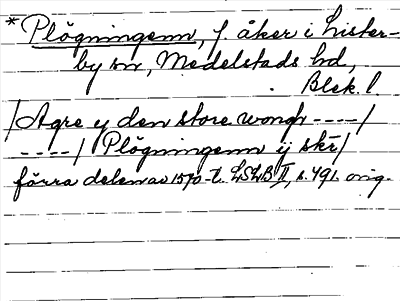 * Plögningenn, f. åker i Lister-
by sn, Medelstads hd,
Blek. l.
/Agre y den store wongh ----/
----/ Plögningenn ij skr/
förra delen av 1570-t. LSLB II, s. 491. orig.